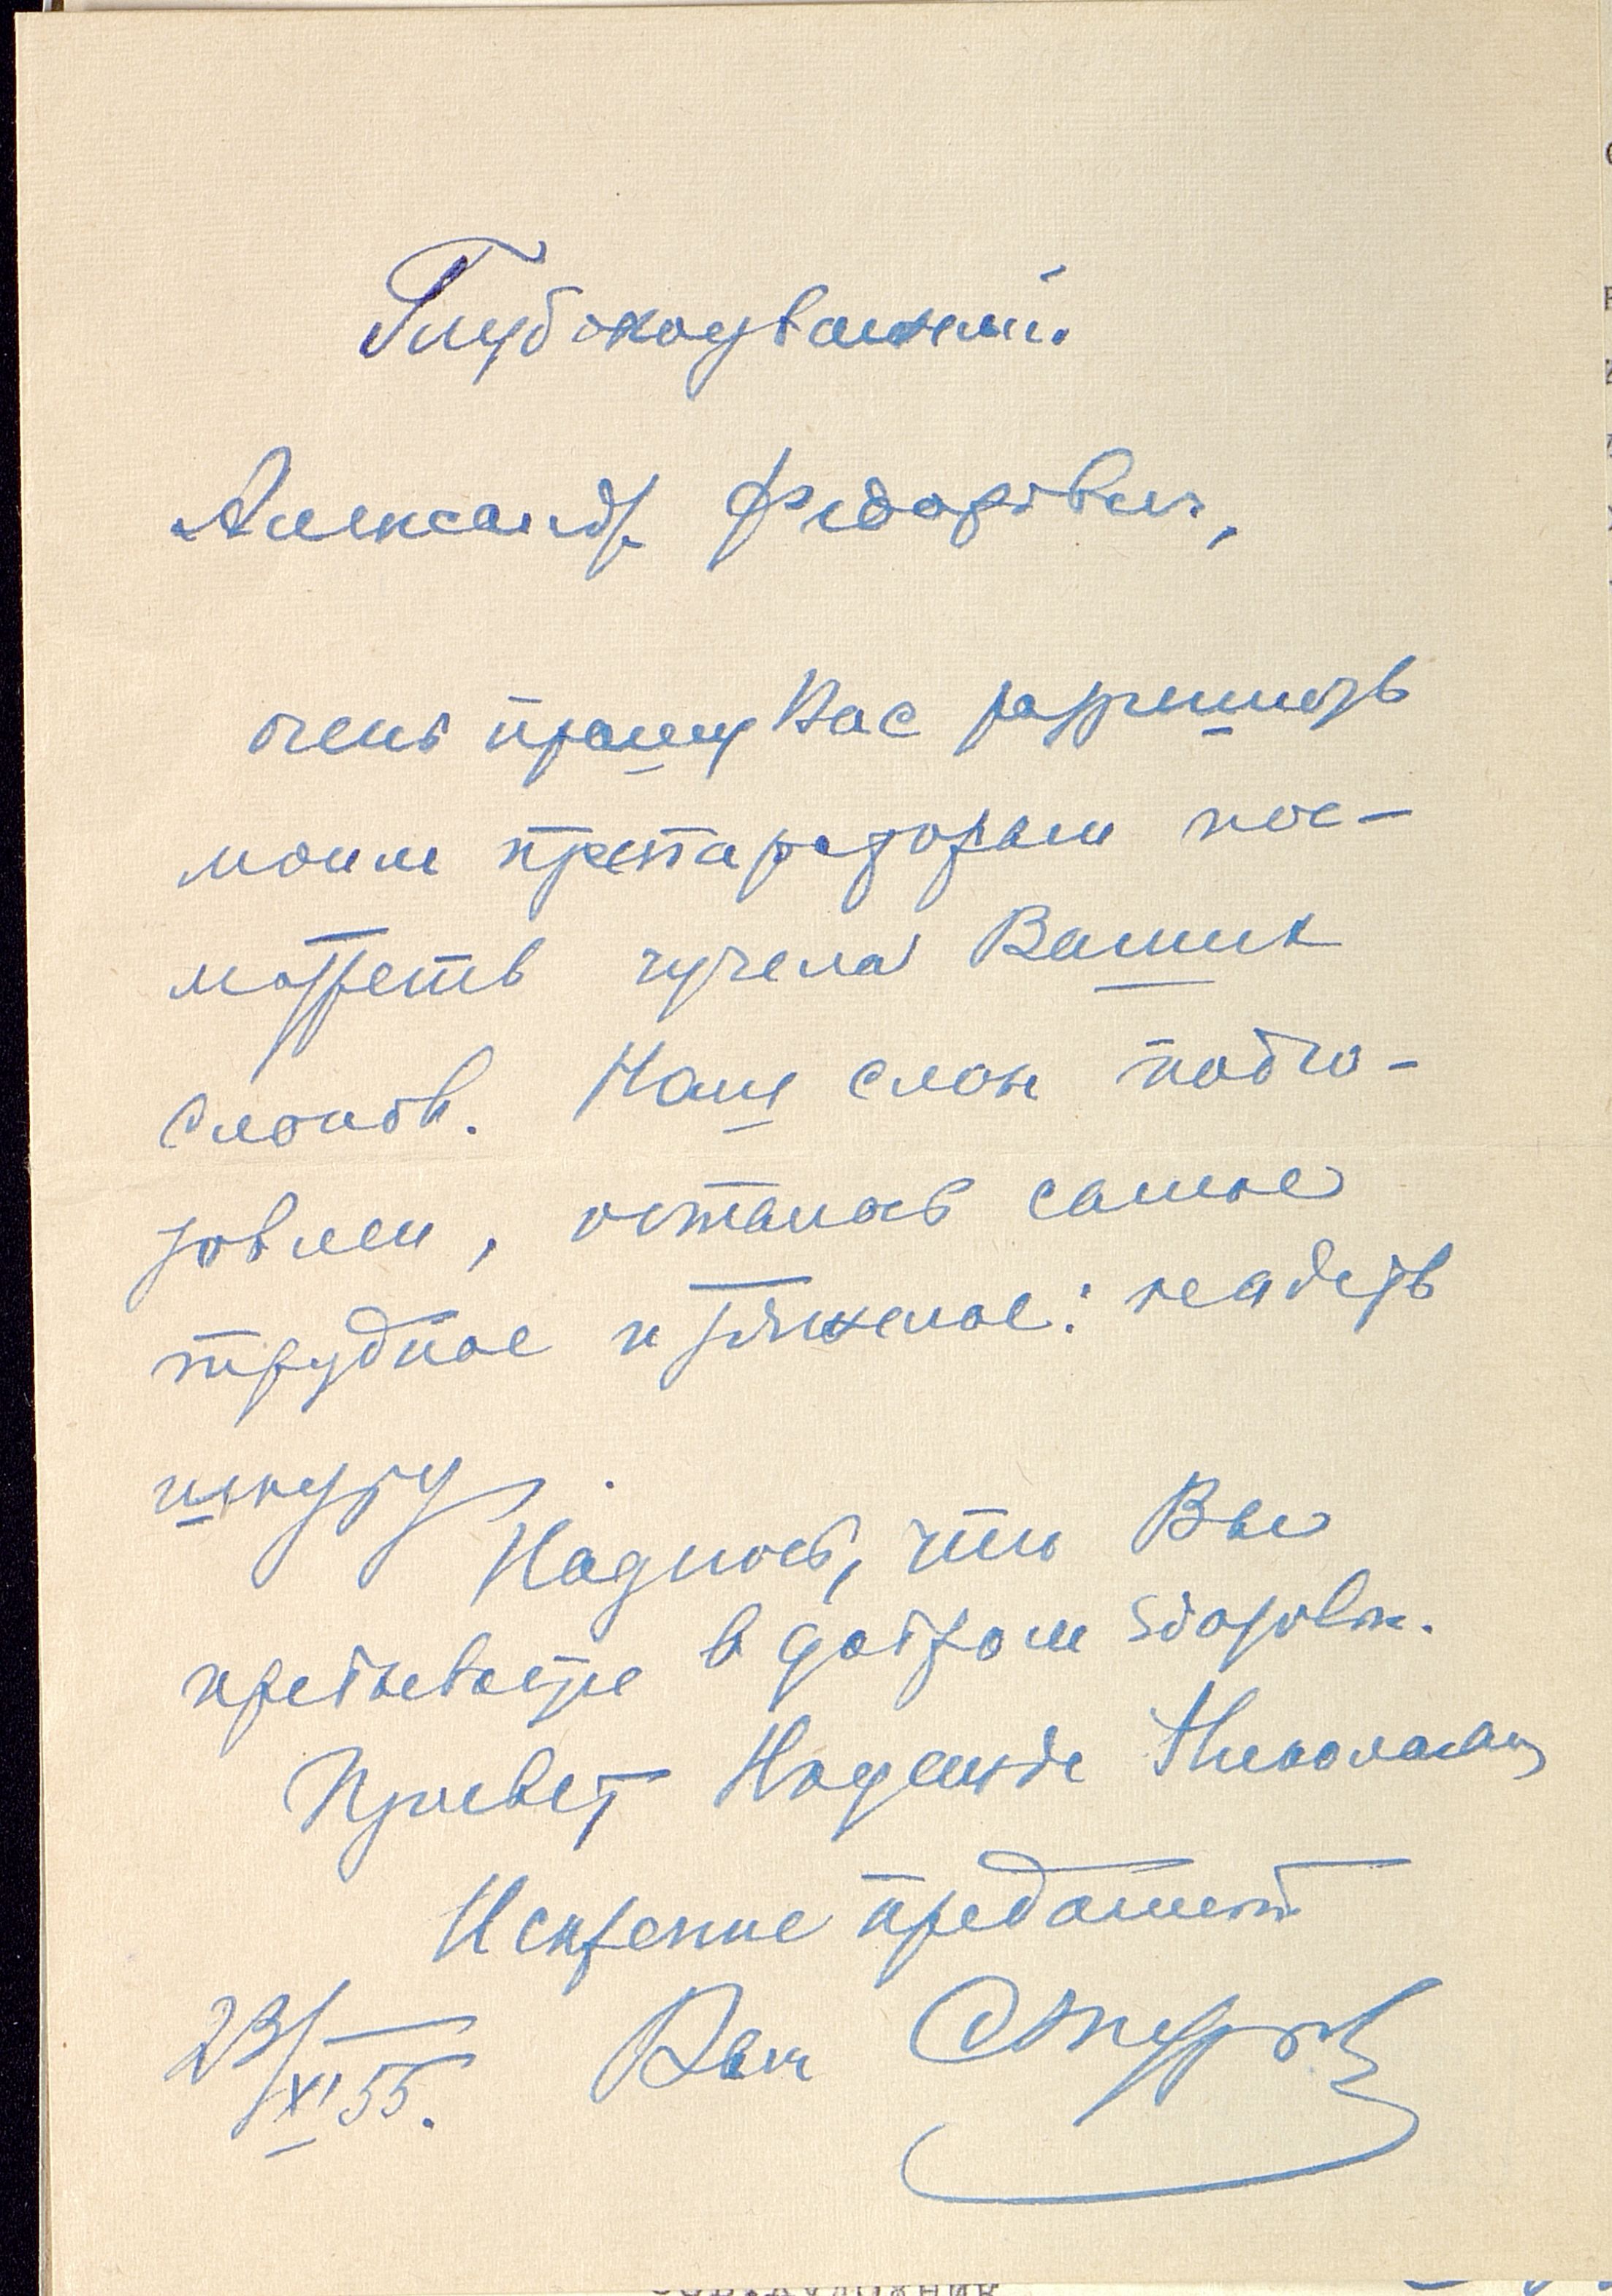 Глубокоуважаемый
Александр Федорович,
очень прошу Вас разрешить
моим препараторам пос-
мотреть чучела Ваших
слонов. Наш слон подго-
товлен, осталось самое
трудное и тяжелое: надеть
шкуру.
Надеюсь, что Вы
пребываете в добром здоровьи.
Привет Надежде Николаевне
Искренне преданный
23/XI 55. Ваш